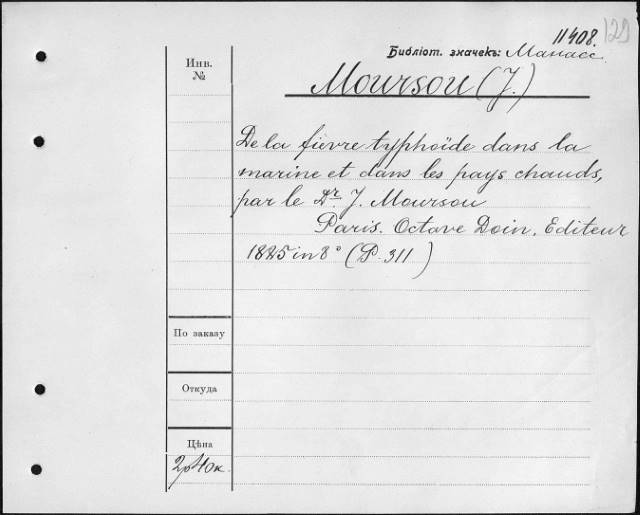 11408. 129
Библіот. значекъ: Манасс.
Инв.
№
Moursou (J.)
De la fièvre typhoïde dans la
marine et dans les pays chauds,
par le Dr. J. Moursou
Paris. Octave Doin, Editeur
1885 in 8° (P. 311)
По заказу
Откуда
Цѣна
2р 40к.